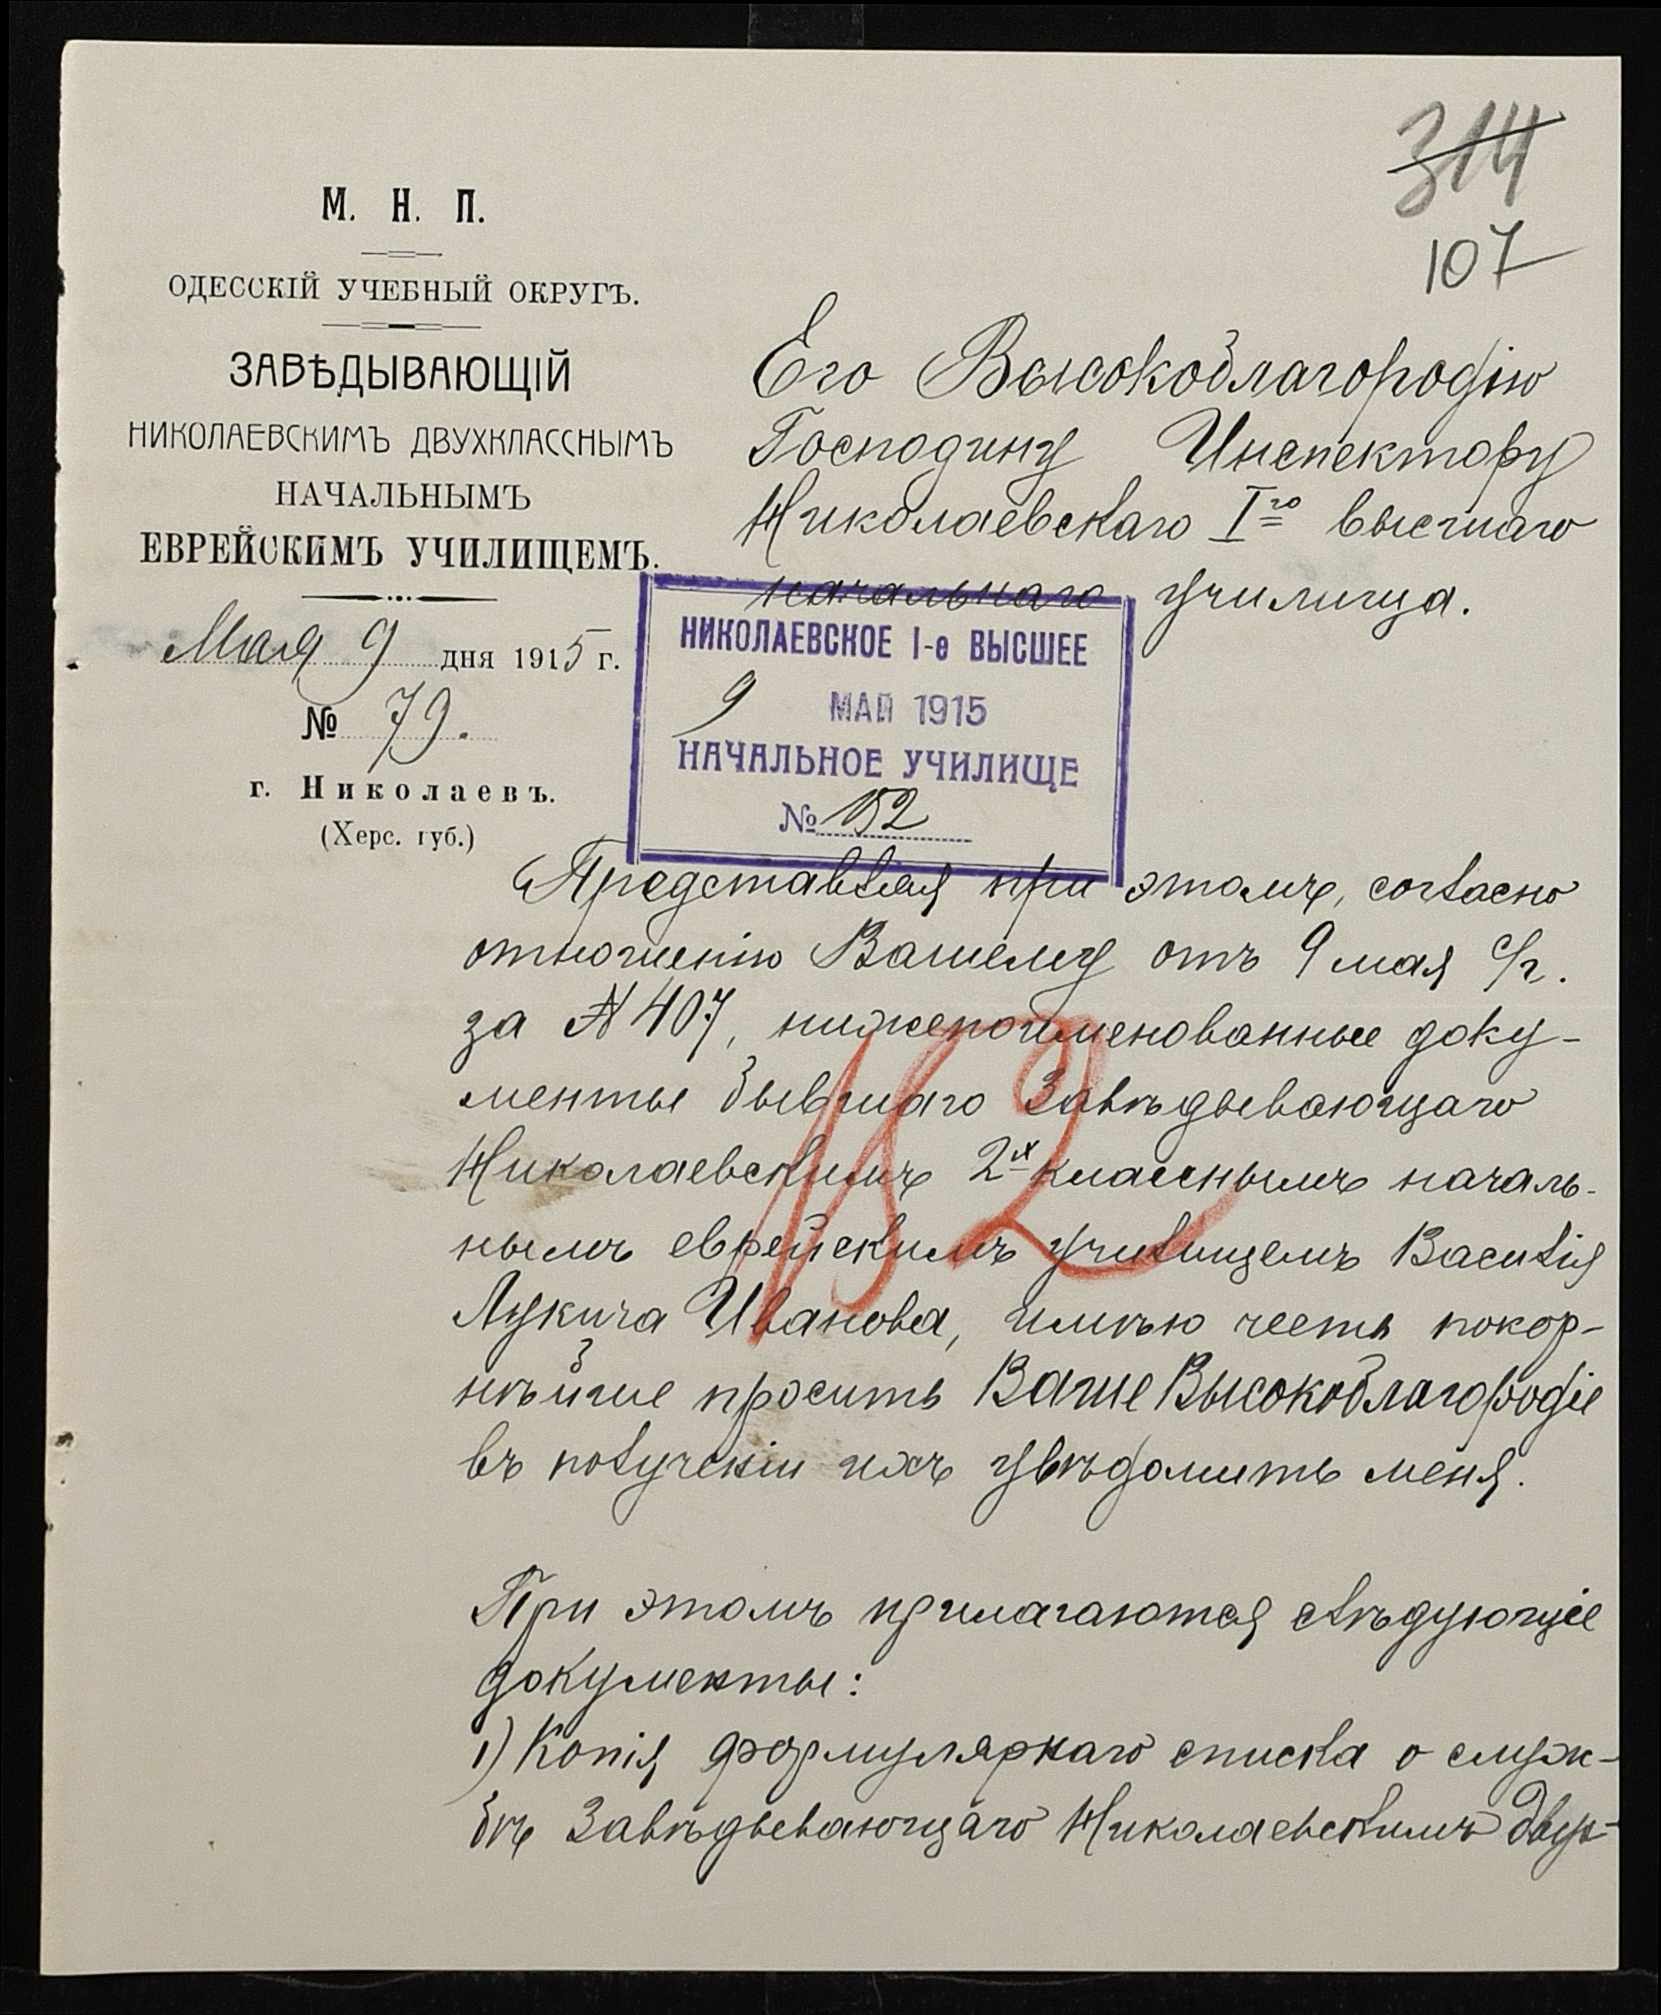 314
107
М. Н. П.
ОДЕССКІЙ УЧЕБНЫЙ ОКРУГЪ.
ЗАВѢДЫВАЮЩІЙ
НИКОЛАЕВСКИМЪ ДВУХКЛАССНЫМЪ
НАЧАЛЬНЫМЪ
ЕВРЕЙСКИМЪ УЧИЛИЩЕМЪ.
Мая 9 дня 1915 г.
№ 79.
г. Николаевъ.
(Херс. губ.)
Его Высокоблагородію
Господину Инспектору
Николаевскаго I го высшаго
начальнаго училища.
НИКОЛАЕВСКОЕ I-е ВЫСШЕЕ
9 МАЙ 1915
НАЧАЛЬНОЕ УЧИЛИЩЕ
№ 152
Представляя при этомъ, согласно
отношенію Вашему отъ 9 мая с/г.
за № 407, нижепоименованные доку-
менты бывшаго Завѣдывающаго
Николаевскимъ 2х класснымъ началь-
нымъ еврейскимъ училищемъ Василія
Лукича Иванова, имѣю честь покор-
нѣйше просить Ваше Высокоблагородіе
въ полученіи ихъ увѣдомить меня.
152
При этомъ прилагаются слѣдующіе
документы:
1) Копія формулярнаго списка о служ-
бѣ Завѣдывающаго Николаевскимъ двух-